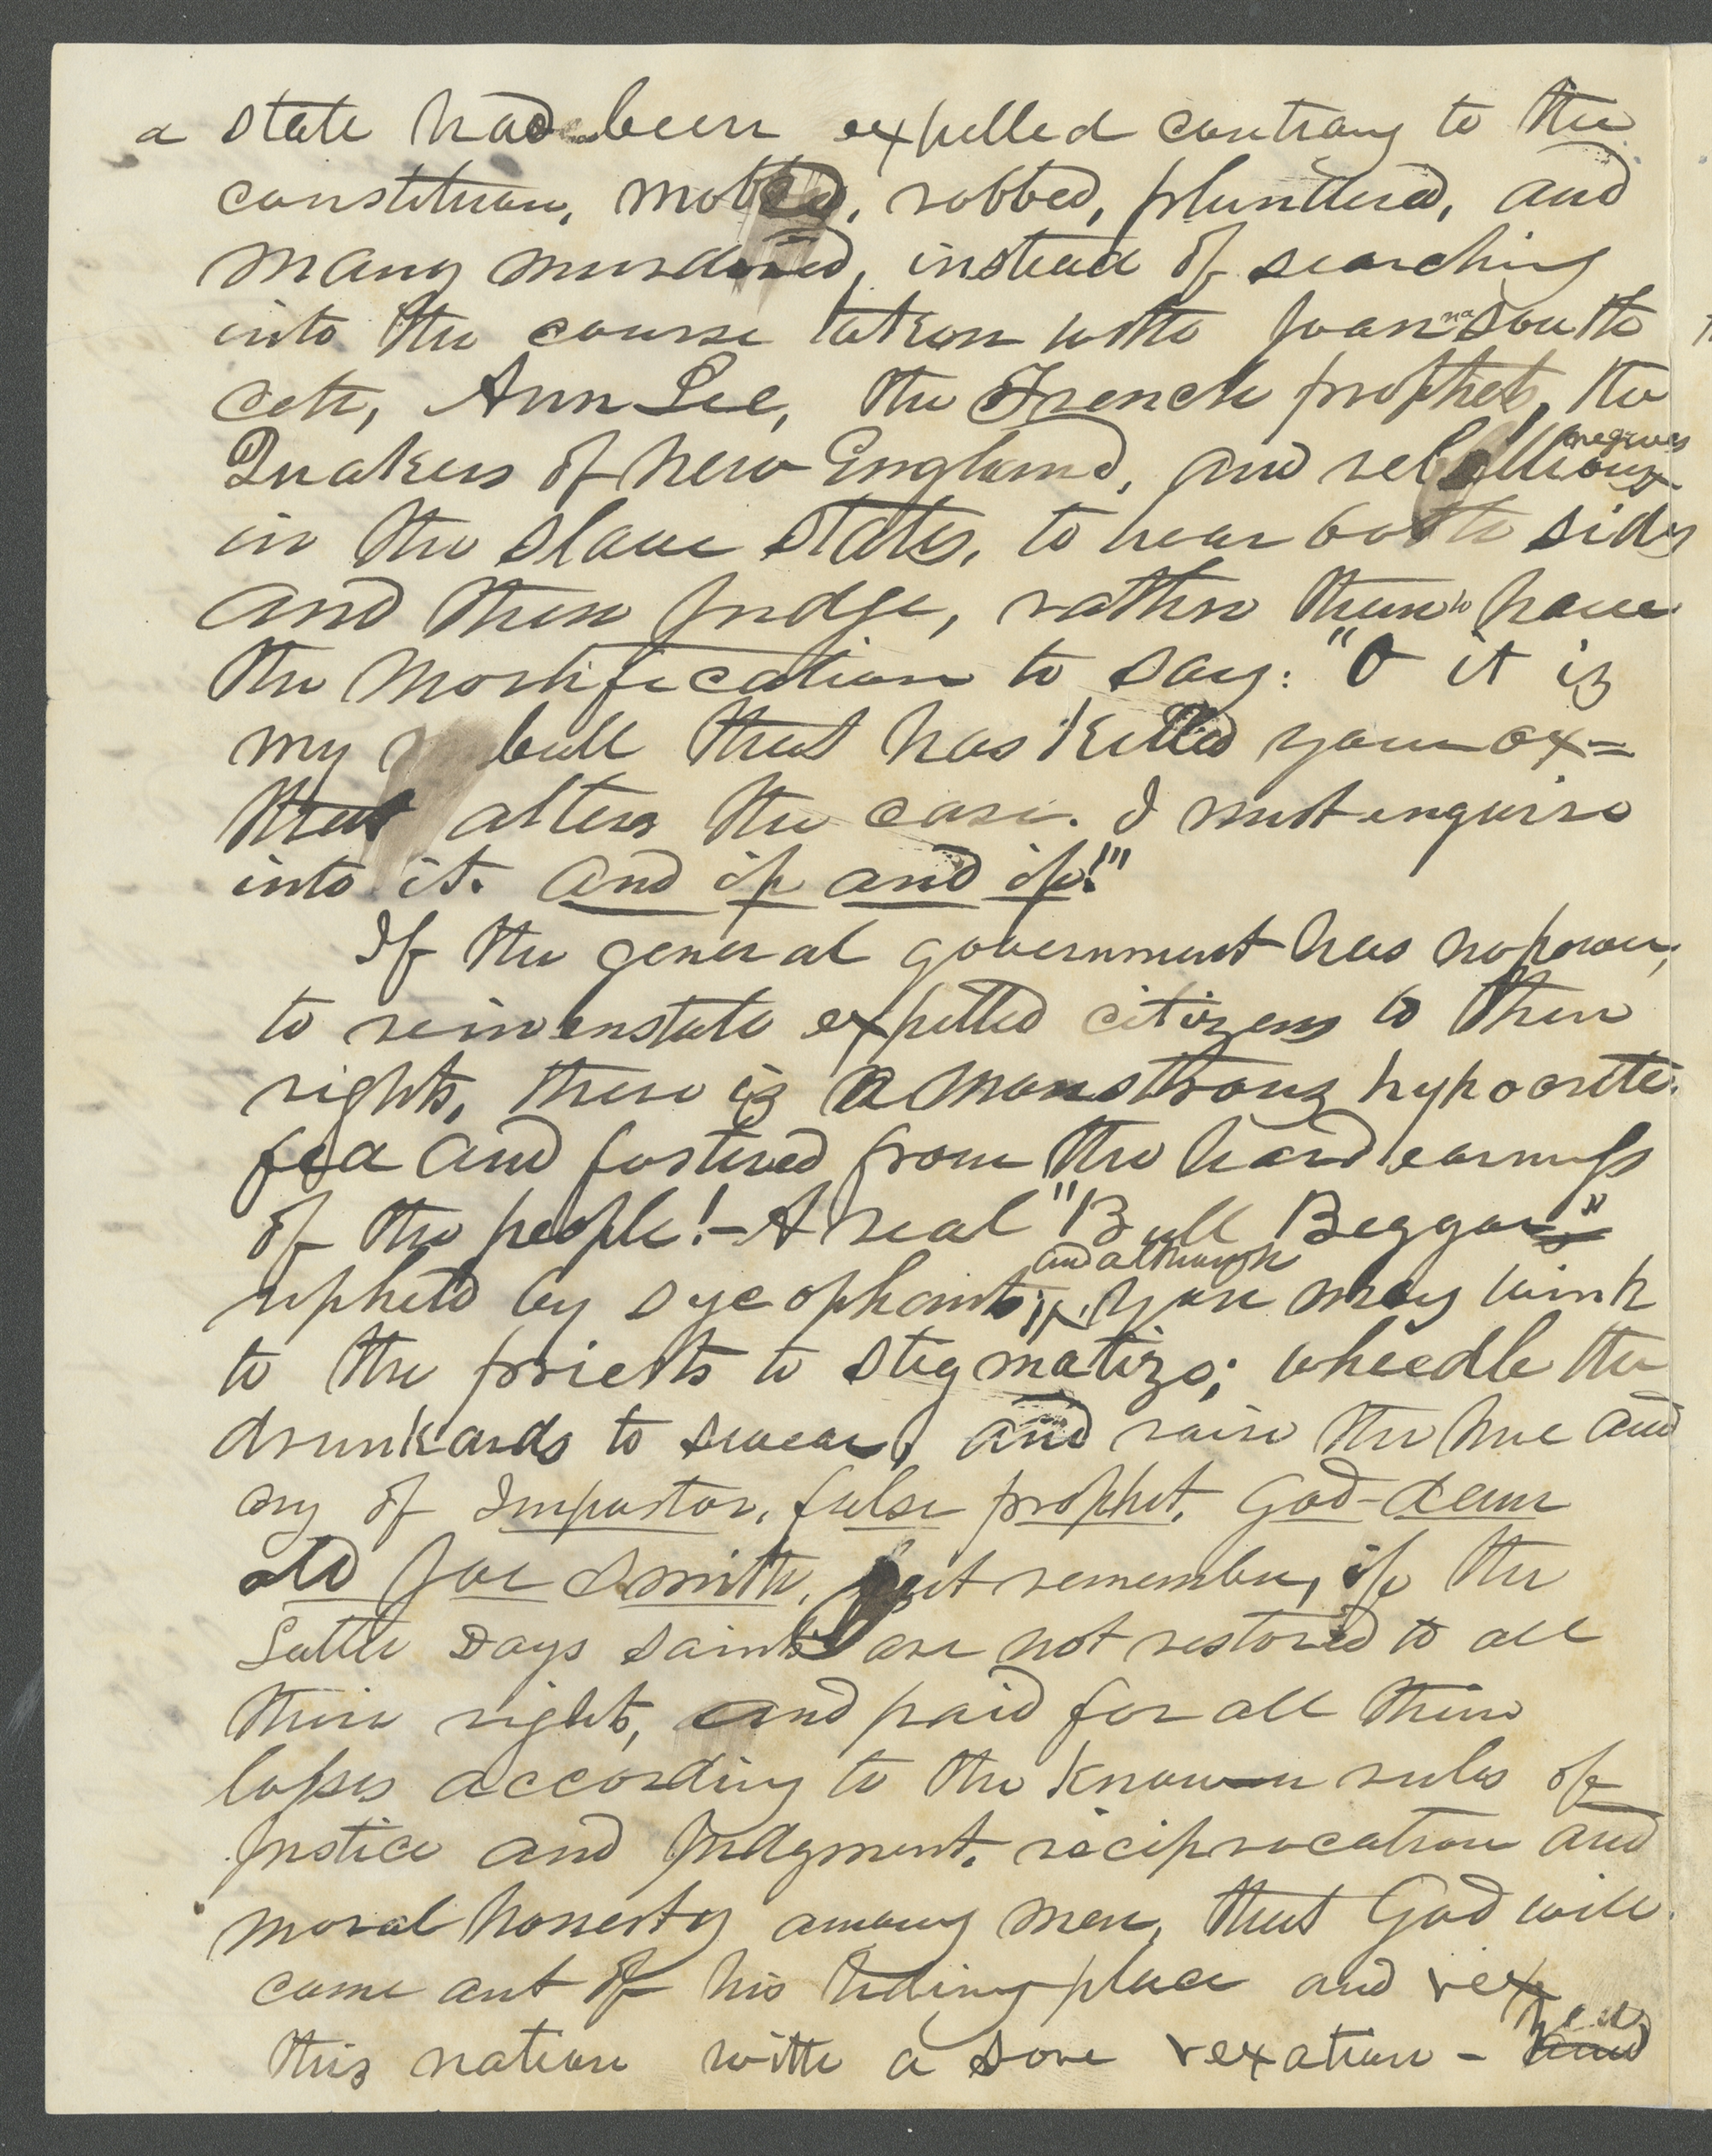 a state had been expelled contrary to the
constitution, mobbed, robbed, plundered, and
many murdered, instead of searching
into the course taken with Joanna South
cott, Ann Lee, the French prophets, the
Quakers of New England, and rebellious negroes
in the slave states, to hear both sides
and then judge, rather than to have
the mortification to say: "O it is
my bull that has killed your ox=
that alters the case. I must enquire
into it. and if and if!"'
If the general government has no power,
to reinenstate expelled citizens to their
rights, there is a monstrous hypocrite.
fed and fostered from the hard earnings
of the people!— A real "Bull Beggar"
upheld by sycophants; and although you may wink
to the priests to stigmatize; wheedle the
drunkards to swear, and raise the hue and
cry of Impostor, false prophet, God-dam
old Joe Smith, yet remember, if the
Latter Days saints are not restored to all
their rights, and paid for all their
losses according to the known rules of
justice and Judgment, reciprocation and
moral honesty among men, that God will
come out of his hiding place and vex
this nation with a sore vexation—